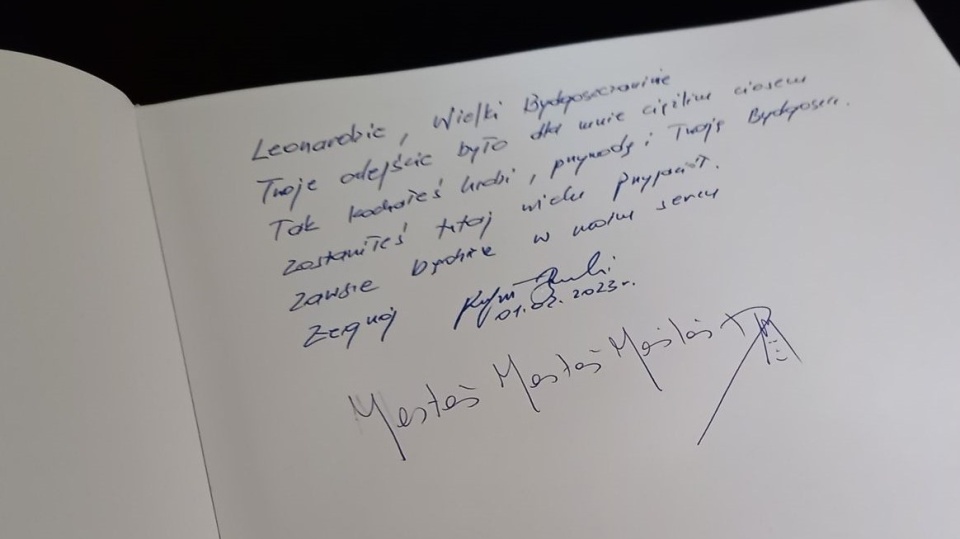 Leonardzie, Wielki Bydgoszczaninie
Twoje odejście było dla mnie ciężkim ciosem
Tak kochałeś ludzi, przyrodę i Twoją Bydgoszcz.
Zostawiłeś tutaj wielu przyjaciół.
Zawsze będziesz w moim sercu
Żegnaj
01.02.2023r.